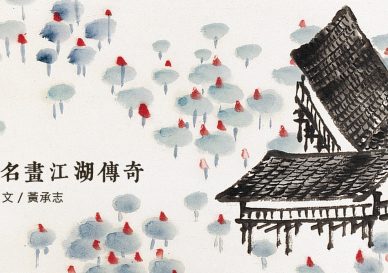 名畫江湖傳奇
文/黃承志